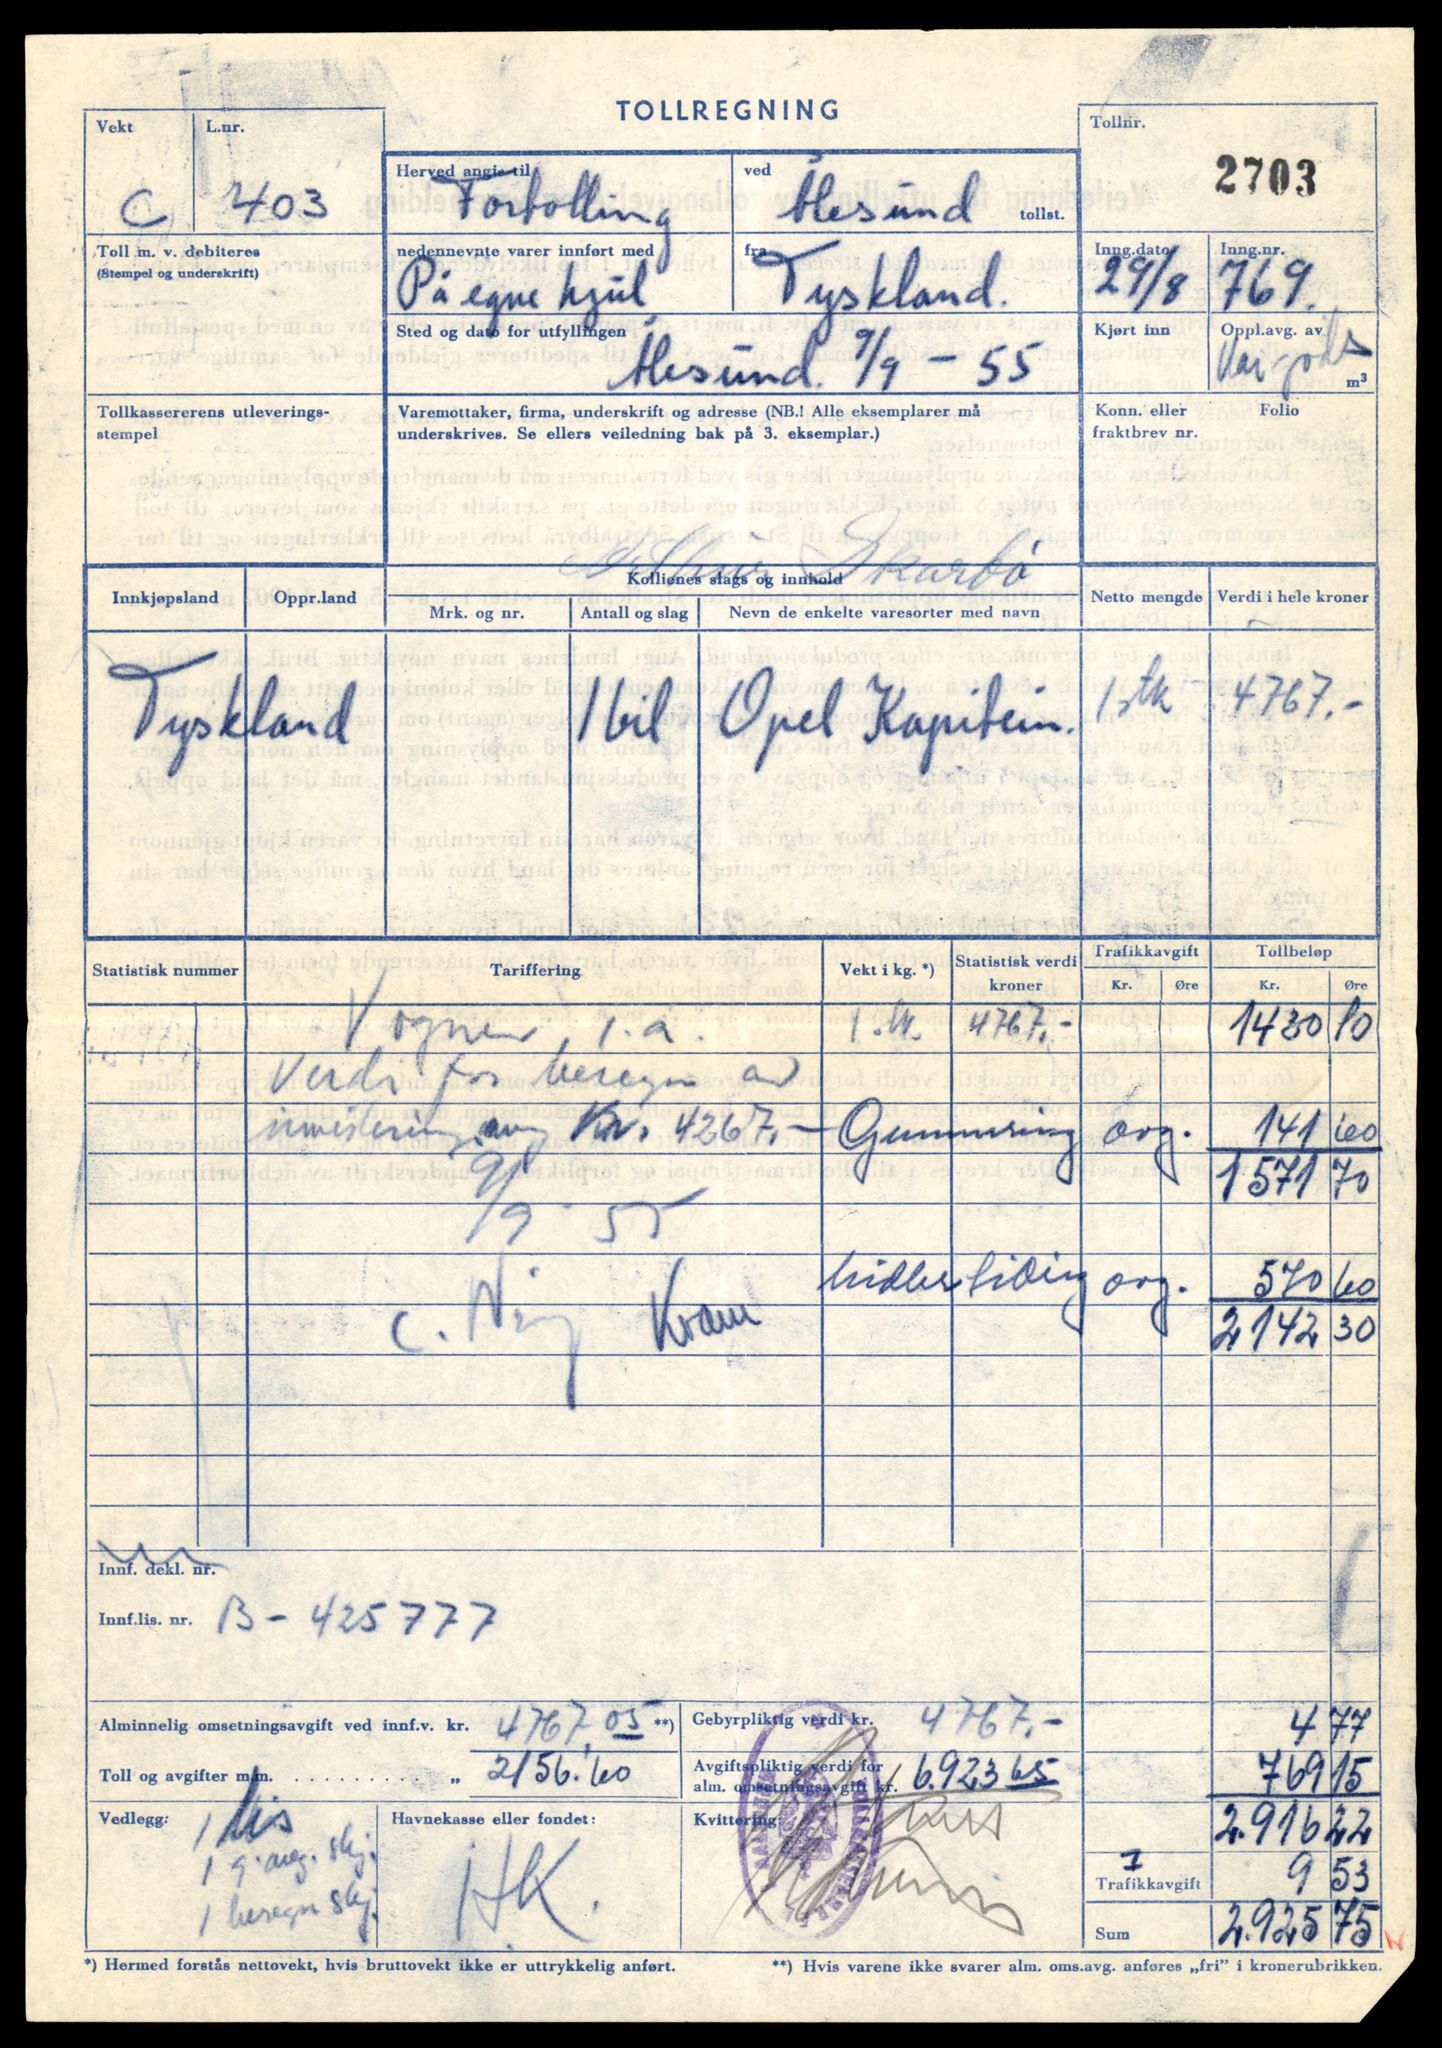 TOLLREGNING
Vekt
L.nr.
Tollnr.
C 403
2703
Herved angis til
ved
Fortolling
Ålesund tollst.
Toll m. v. debiteres
(Stempel og underskrift)
nedennevnte varer innført med
fra
På egne hjul
Tyskland.
Inng.dato
Inng.nr.
29/8 769.
Sted og dato for utfyllingen
Ålesund. 9/9 - 55
Kjørt inn
Oppl.avg. av
m³
Tollkassererens utleverings-
stempel
Varemottaker, firma, underskrift og adresse (NB.! Alle eksemplarer må
underskrives. Se ellers veiledning bak på 3. eksemplar.)
Konn. eller
fraktbrev nr.
Folio
Skarbø
Innkjøpsland
Oppr.land
Kollienes slags og innhold
Mrk. og nr.
Antall og slag
Nevn de enkelte varesorter med navn
Netto mengde
Verdi i hele kroner
Tyskland 1 bil Opel Kapitein. 1 stk 4767.-
Statistisk nummer
Tariffering
Vekt i kg. *)
Statistisk verdi
kroner
Trafikkavgift
Kr. Øre
Tollbeløp
Kr. Øre
Vogner 1.a. 1 st. 4767.- 1430 10
Verdi for beregn av
investering avg Kr. 4267.- Gummiring avg. 141 60
1571 70
9/9 55
avg. 570 60
2142 30
C.
Innf. dekl. nr.
Innf.lis. nr. B - 425777
Alminnelig omsetningsavgift ved innf.v. kr. 4767,05 **)
Gebyrpliktig verdi kr. 4767.- 4 77
Toll og avgifter m.m. . . . . . . . . . . . . „ 2156.60
Avgiftspliktig verdi for
alm. omsetningsavgift kr. 6.923 65 769 15
Vedlegg:
1 lis
1 g. avg. skj.
1 beregn skj.
Havnekasse eller fondet:
HK.
Kvittering:
2.916 22
Trafikkavgift 9 53
Sum 2.925 75
*) Hermed forstås nettovekt, hvis bruttovekt ikke er uttrykkelig anført.
**) Hvis varene ikke svarer alm. oms.avg. anføres „fri” i kronerubrikken.